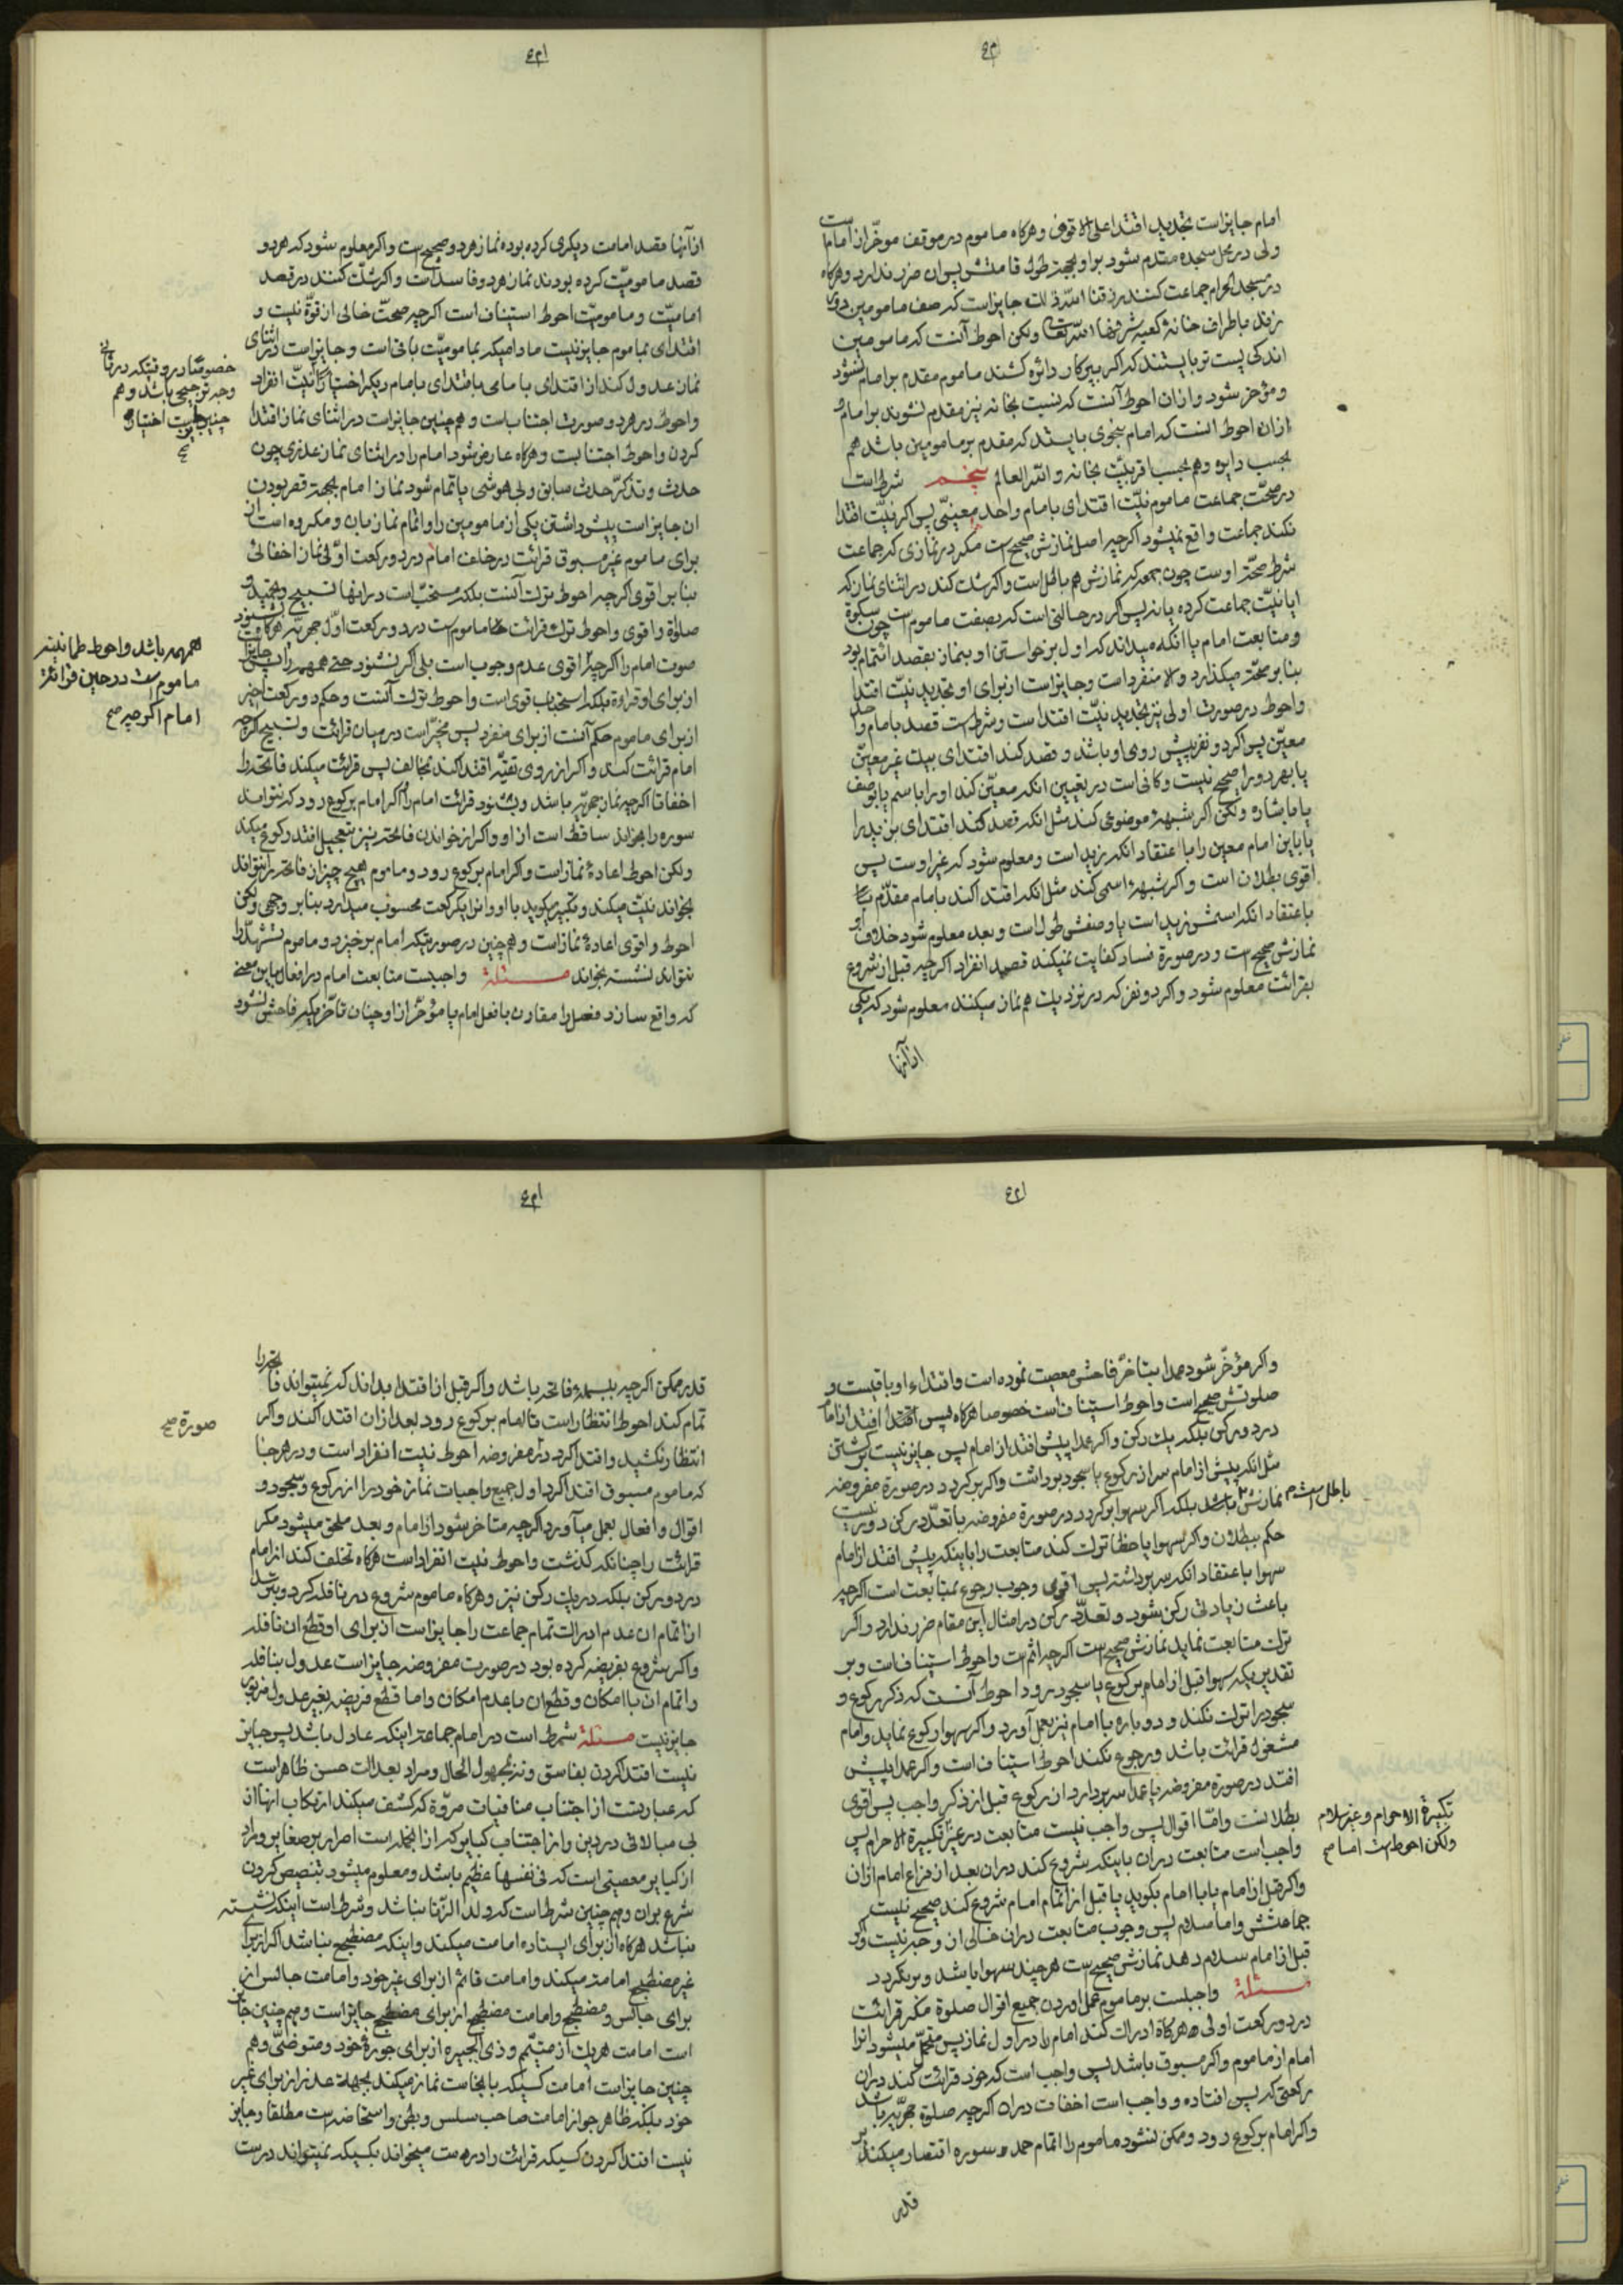 امام جایز است تجدید اقتدا علی الاقوی و هرکاه ماموم در موقف موخر از امام است
ولی در محل سجده مقدم شود بر او بجهة طول قامتش پس ان ضرر ندارد و هرکاه
در مسجد الحرام جماعت کنند رزقنا الله ذلك جایز است که صف مامومین دور
زند باطراف خانه کعبه شرفها الله تعالی ولکن احوط آنست که مامومین
اندکی پست تر بایستند که اکر بپرکار دائره کشند ماموم مقدم بر امام نشود
و مؤخر شود و از ان احوط آنست که نسبت بخانه نیز مقدم نشوند بر امام و
از ان احوط انست که امام بنحوی بایستد که مقدم بر مامومین باشد هم
بحسب دایره و هم بحسب اقربیت بخانه و الله العالم پنجم شرط است
در صحت جماعت ماموم نیت اقتدای بامام واحد معینی پس اکر نیت اقتدا
نکند جماعت واقع نمیشود اکرچه اصل نمازش صحیح است مکر در نمازی که جماعت
شرط صحة اوست چون جمعه که نمازش هم باطل است و اکر شك کند در اثنای نماز که
ایا نیت جماعت کرده یا نه پس اکر در حالتی است که بصفت ماموم است چون سکوة
و متابعت امام یا انکه میداند که اول برخواستن او بنماز بقصد ائتمام بود
بنا بر صحة میکذارد و الا منفرد است و جایز است از برای او تجدید نیت اقتدا
و احوط در صورت اولی نیز تجدید نیت اقتدا است و شرط است قصد بامام واحد
معین پس اکر دو نفر پیش روی او باشند و قصد کند اقتدای بیك غیر معین
یا بهر دو را صحیح نیست و کافی است در تعیین انکه معین کند او را باسم یا بوصف
یا باشاره ولکن اکر شبهه موضوعی کند مثل انکه قصد کند اقتدای بزید را
یا باین امام معین را با اعتقاد انکه زید است و معلوم شود که غیر اوست پس
اقوی بطلان است و اکر شبهه اسمی کند مثل انکه اقتدا کند بامام مقدم بنا
باعتقاد انکه اسمش زید است یا وصفش طول است و بعد معلوم شود خلاف او
نمازش صحیح است و در صورة فساد کفایت نمیکند قصد انفراد اکرچه قبل از شروع
بقرائت معلوم شود و اکر دو نفر که در نزد یك هم نماز میکنند معلوم شود که یکی
از آنها
از آنها قصد امامت دیکری کرده بوده نماز هر دو صحیح است و اکر معلوم شود که هر دو
قصد مامومیت کرده بودند نماز هر دو فاسد است و اکر شك کنند در قصد
امامیت و مامومیت احوط استیناف است اکرچه صحت خالی از قوة نیست و
اقتدای بماموم جایز نیست مادامیکه بمامومیت باقی است و جایز است در اثنای
نماز عدول کند از اقتدای بامامی باقتدای بامام دیکر اختیارا نیت انفراد
و احوط در هر دو صورت اجتناب است و هم چنین جایز است در اثنای نماز اقتدا
کردن و احوط اجتنابست و هرکاه عارض شود امام را در اثنای نماز عذری چون
حدث و تذکر حدث سابق ولی هوشی یا تمام شود نماز امام بجهة قصر بودن
ان جایز است پیش داشتن یکی از مامومین را و اتمام نماز بان و مکروه است ان
برای ماموم غیر مسبوق قرائت در خلف امام در دو رکعت اولی نماز اخفائی
بنا بر اقوی اکرچه احوط ترك آنست بلکه مستحب است در انها تسبیح و تحمید و
صلوة و اقوی و احوط ترك قرائت ماموم است در دو رکعت اول جهریه هرکاه بشنود
صوت امام را اکرچه اقوی عدم وجوب است بلی اکر نشنود حتی همهمه را پس جایز
از برای او قراءة بلکه استحباب قوی است و احوط ترك آنست و حکم دو رکعت اخیر
از برای ماموم حکم آنست از برای منفرد پس مخیر است در میان قرائت و تسبیح اکرچه
امام قرائت کند و اکر از روی تقیه اقتدا کند بمخالف پس قرائت میکند فاتحه را
اخفاتا اکرچه نماز جهریه باشد و بشنود قرائت امام را و اکر امام برکوع رود که نتواند
سوره را بخواند ساقط است از او و اکر از خواندن فاتحه نیز بتعجیل افتد رکوع میکند
ولکن احوط اعاده نماز است و اکر امام برکوع رود و ماموم هیچ چیز از فاتحه را نتواند
بخواند نیت میکند و تکبیر میکوید با او و انرا یکرکعت محسوب میدارد بنا بر وجهی ولکن
احوط و اقوی اعاده نماز است و هم چنین در صورتیکه امام برخیزد و ماموم تشهد را
نتواند نشسته بخواند مسئلة واجبست متابعت امام در افعال باین معنی
که واقع سازد فعل را مقارن با فعل امام یا مؤخر از او چنان تاخریکه فاحش نشود
خصوصا در وقتیکه در ثانی
وجه ترجیحی باشد و هم
چنین جایز است اختیارا
صح
همهمه باشد و احوط طمانینه
ماموم است در حین قرائة
امام اکرچه صح
و اکر مؤخر شود عمدا بتاخر فاحشی معصیت نموده است و اقتداء او باقیست و
صلوتش صحیح است و احوط استیناف است خصوصا هرکاه پس افتد از امام
در دو رکن بلکه یك رکن و اکر عمدا پیش افتد از امام پس جایز نیست برکشتن
مثل انکه پیش از امام سر از رکوع یا سجود برداشت و اکر برکردد در صورة مفروضه
نمازش باشد بلکه اکر سهوا برکردد در صورة مفروضه با تعدد رکن دور نیست
حکم ببطلان و اکر سهوا یا خطا ترك کند متابعت را باینکه پیش افتد از امام
سهوا باعتقاد انکه سر برداشته پس اقوی وجوب رجوع بمتابعت است اکرچه
باعث زیادتی رکن شود و تعدد رکن در امثال این مقام ضرر ندارد و اکر
ترك متابعت نماید نمازش صحیح است اکرچه اثم است و احوط استیناف است و بر
تقدیریکه سهوا قبل از امام برکوع یا سجود رود احوط آنست که ذکر رکوع و
سجود را ترك نکند و دوباره با امام نیز بعمل آورد و اکر سهوا رکوع نماید و امام
مشغول قرائت باشد و رجوع نکند احوط استیناف است و اکر عمدا پیش
افتد در صورة مفروضه یا عمدا سر بردارد از رکوع قبل از ذکر واجب پس اقوی
بطلانست و امّا اقوال پس واجب نیست متابعت در غیر تکبیرة الاحرام پس
واجب است متابعت در ان باینکه شروع کند در ان بعد از فراغ امام از ان
و اکر قبل از امام یا با امام بکوید یا قبل از اتمام امام شروع کند صحیح نیست
جماعتش و اما سلام پس وجوب متابعت در ان خالی از وجه نیست و اکر
قبل از امام سلام دهد نمازش صحیح است هرچند سهوا باشد و برنکردد
مسئلة واجبست بر ماموم بعمل اوردن جمیع اقوال صلوة مکر قرائت
در دو رکعت اولی هرکاه ادراك کند امام را در اول نماز پس متحمل میشود انرا
امام از ماموم و اکر مسبوق باشد پس واجب است که خود قرائت کند در ان
رکعتی که پس افتاده و واجب است اخفات در ان اکرچه صلوة جهریه باشد
و اکر امام برکوع رود و ممکن نشود ماموم را اتمام حمد و سوره اقتصار میکند بر
قدر
باطل است
تکبیرة الاحرام و غیر سلام
ولکن احوط است اما صح
قدر ممکن اکرچه ببسمله فاتحه باشد و اکر قبل از اقتدا بداند که نمیتواند فاتحه را
تمام کند احوط انتظار است تا امام برکوع رود بعد از ان اقتدا کند و اکر
انتظار نکشید و اقتدا کرد در مفروضه احوط نیت انفراد است و در هر جا
که ماموم مسبوق اقتدا کرد اول جمیع واجبات نماز خود را از رکوع و سجود و
اقوال و افعال بعمل میآورد اکرچه متاخر شود از امام و بعد ملحق میشود مکر
قرائت را چنانکه کذشت و احوط نیت انفراد است هرکاه تخلف کند از امام
در دو رکن بلکه در یك رکن نیز و هرکاه ماموم شروع در نافله کرد و بترسد
از اتمام ان عدم ادراك تمام جماعت را جایز است از برای او قطع ان نافله
و اکر شروع بفریضه کرده بود در صورت مفروضه جایز است عدول بنافله
و اتمام ان با امکان و قطع ان با عدم امکان و اما قطع فریضه بغیر عدول مزبور
جایز نیست مسئلة شرط است در امام جماعة اینکه عادل باشد پس جایز
نیست اقتدا کردن بفاسق و نه بمجهول الحال و مراد بعدالت حسن ظاهر است
که عبارتست از اجتناب منافیات مروة که کشف میکند ارتکاب انها از
بی مبالاتی در دین و از اجتناب کبایر که از انجمله است اصرار بر صغایر و مراد
از کبایر معصیتی است که فی نفسها عظیم باشد و معلوم میشود بتنصیص کردن
شرع بر ان و هم چنین شرط است که ولد الزنا نباشد و شرط است اینکه نشسته
نباشد هرکاه از برای ایستاده امامت میکند و اینکه مضطجع نباشد اکر از برای
غیر مضطجع امامت میکند و امامت قائم از برای غیر خود و امامت جالس از
برای جالس و مضطجع و امامت مضطجع از برای مضطجع جایز است و هم چنین جایز
است امامت هریك از متیمم و ذی الجبیره از برای جوره خود و متوضی و هم
چنین جایز است امامت کسیکه با نجاست نماز میکند بجهة عذر از برای غیر
خود بلکه ظاهر جواز امامت صاحب سلس و بطن و استحاضه است مطلقا و جایز
نیست اقتدا کردن کسیکه قرائت را درست میخواند بکسیکه نمیتواند درست
صورة صح